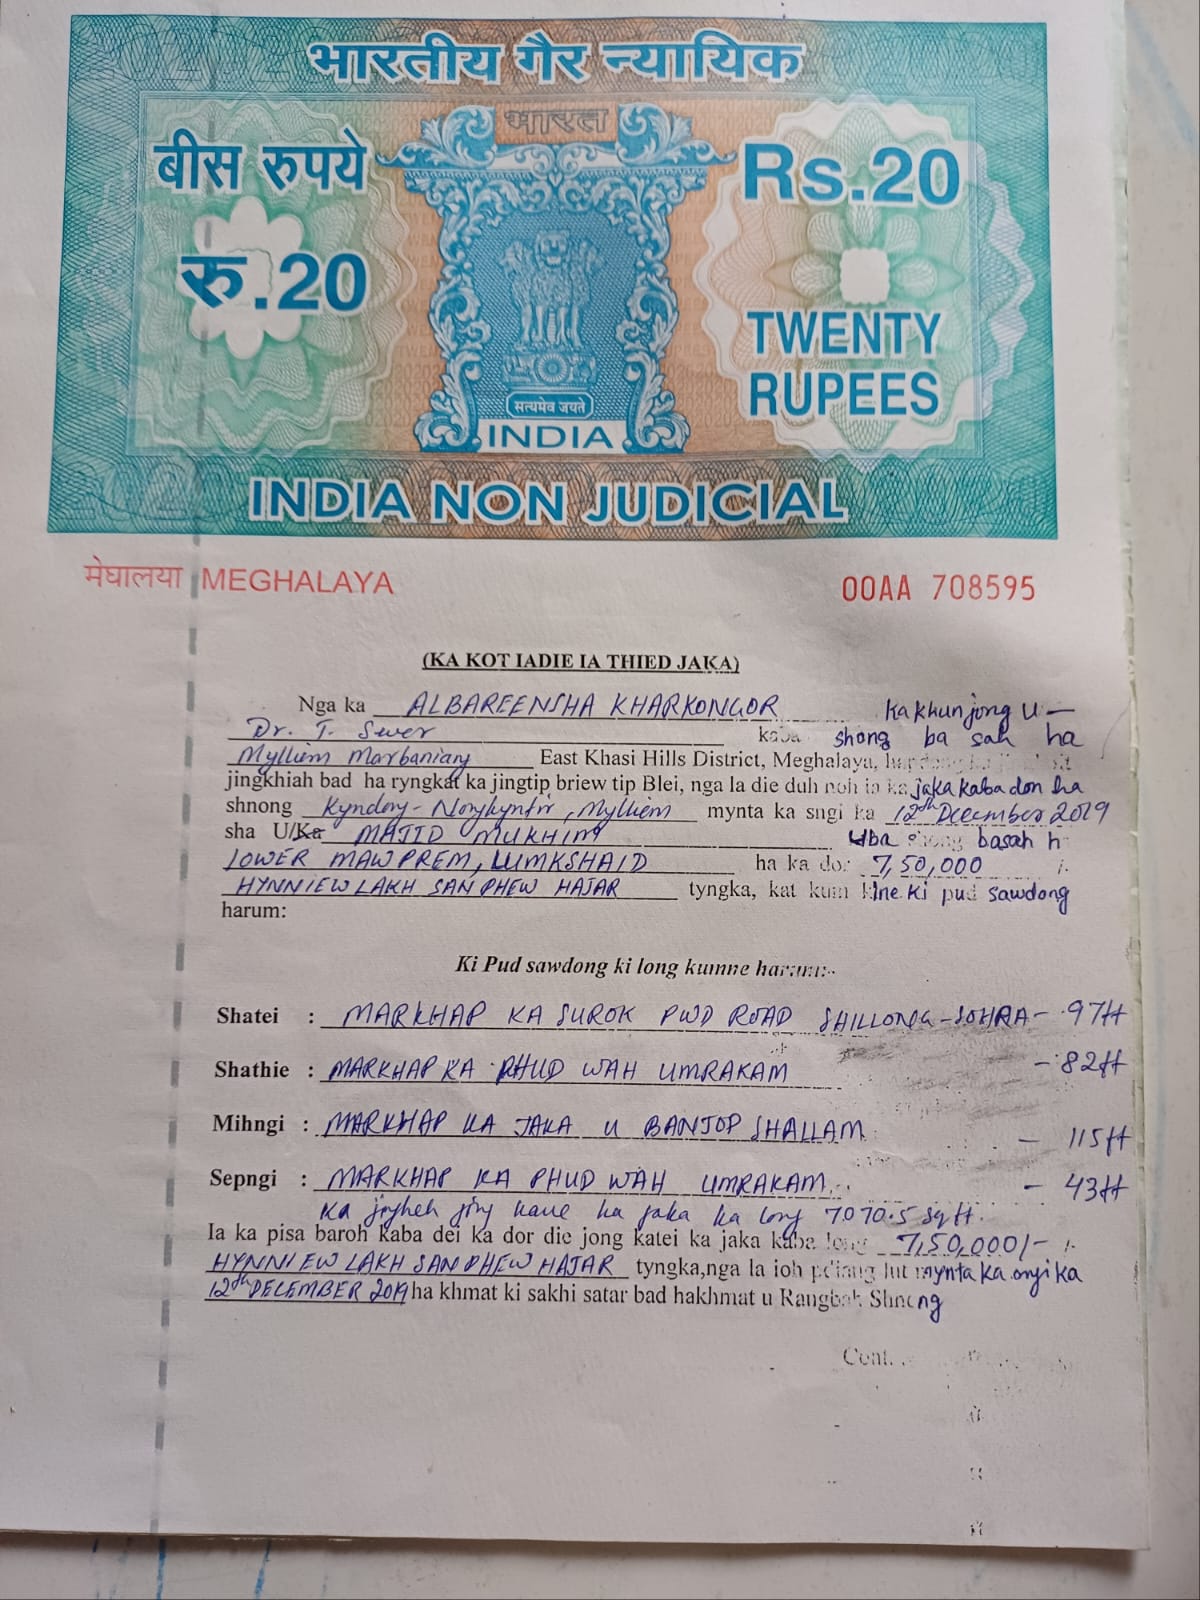 भारतीय गैर न्यायिक
भारत
बीस रुपये
Rs.20
रु.20
TWENTY
RUPEES
सत्यमेव जयते
INDIA
INDIA NON JUDICIAL
मेघालया MEGHALAYA
00AA 708595
(KA KOT IADIE IA THIED JAKA)
Nga ka ALBAREENSHA KHARKONGOR ka khun jong U —
Dr. T. Swer kaba shong ba sah ha
Mylliem Marbaniang East Khasi Hills District, Meghalaya,
jingkhiah bad ha ryngkat ka jingtip briew tip Blei, nga la die duh noh ia ka jaka kaba don ha
shnong Kyndong-Nongkyntir, Mylliem mynta ka sngi ka 12th December 2019
sha U/Ka MAJID MUKHIM Uba shong basah h
LOWER MAWPREM, LUMKSHAID ha ka dor 7,50,000 /-
HYNNIEW LAKH SAN PHEW HAJAR tyngka, kat kum kine ki pud sawdong
harum:
Ki Pud sawdong ki long kumne harum:-
Shatei : MARKHAP KA SUROK PWD ROAD SHILLONG-SOHRA - 97ft
Shathie : MARKHAP KA PHUD WAH UMRAKAM - 82ft
Mihngi : MARKHAP KA JAKA U BANJOP SHALLAM - 115ft
Sepngi : MARKHAP KA PHUD WAH UMRAKAM - 43ft
Ka jingheh jong kane ka jaka ka long 7070.5 sq ft.
Ia ka pisa baroh kaba dei ka dor die jong katei ka jaka kaba long 7,50,000/- /-
HYNNIEW LAKH SAN PHEW HAJAR tyngka,nga la ioh pdiang lut mynta ka sngi ka
12th DECEMBER 2019 ha khmat ki sakhi satar bad hakhmat u Rangbah Shnong
Cont.